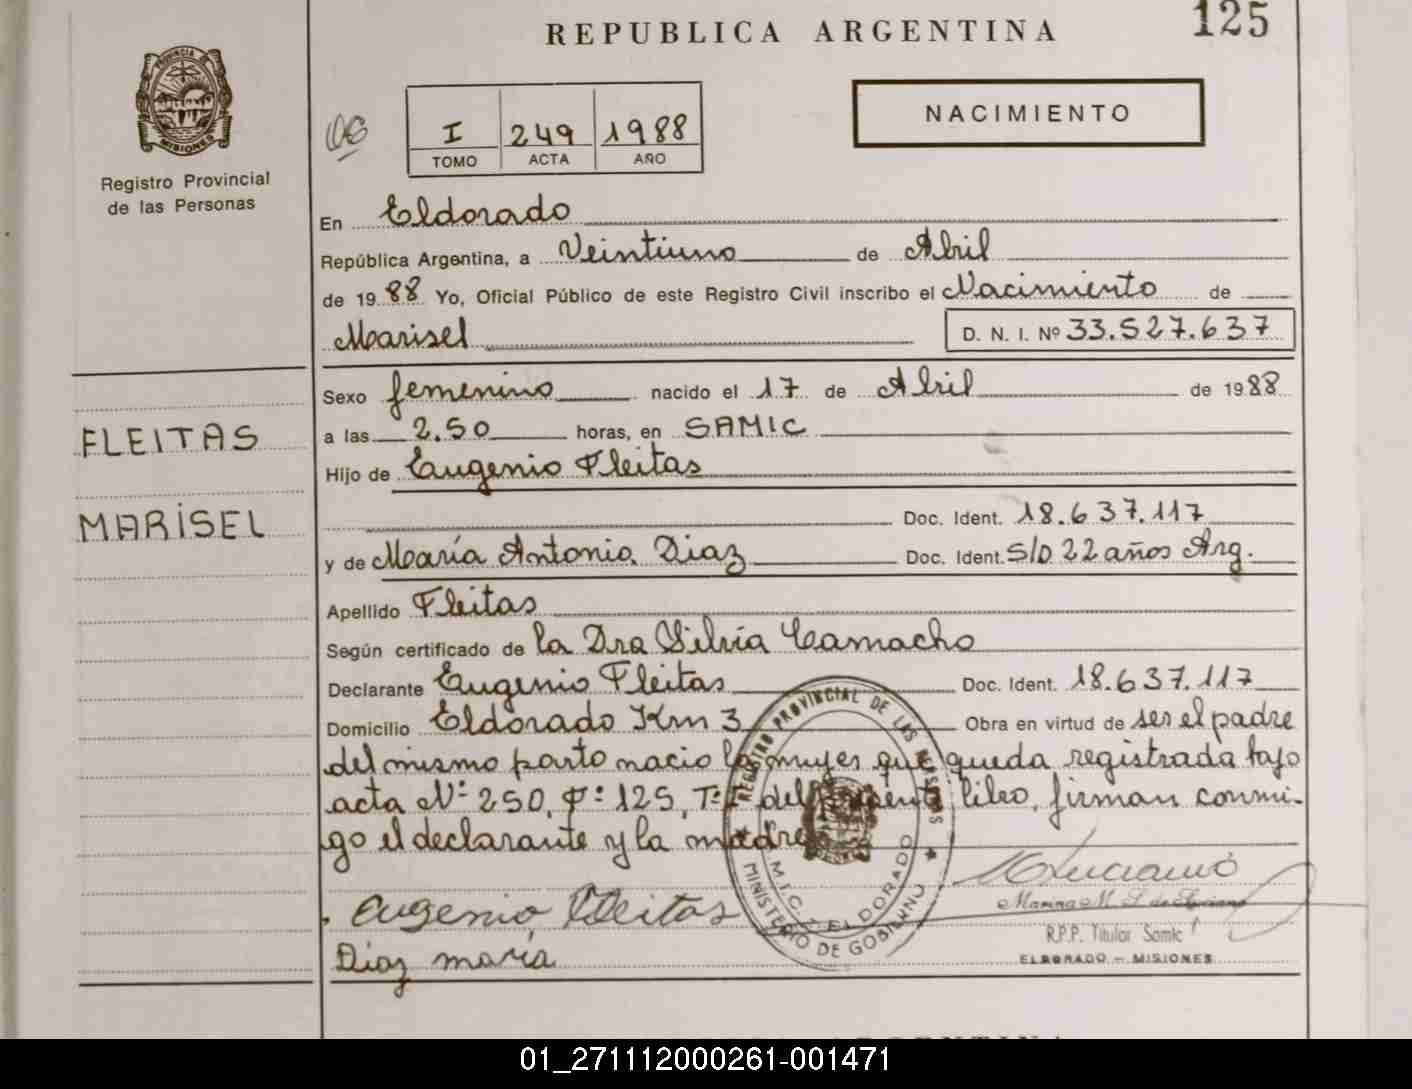 REPUBLICA ARGENTINA
125
PROVINCIA DE
MISIONES
Registro Provincial
de las Personas
I 249 1988
TOMO ACTA AÑO
NACIMIENTO
En Eldorado
República Argentina, a Veintiuno de Abril
de 1988 Yo, Oficial Público de este Registro Civil inscribo el Nacimiento de
Marisel D. N. I. Nº 33.527.637
Sexo femenino nacido el 17 de Abril de 1988
FLEITAS
a las 2.50 horas, en SAMIC
Hijo de Eugenio Fleitas
MARISEL
Doc. Ident. 18.637.117
y de María Antonia Diaz Doc. Ident. S/D 22 años Arg.
Apellido Fleitas
Según certificado de la Dra Silvia Camacho
Declarante Eugenio Fleitas Doc. Ident. 18.637.117
Domicilio Eldorado Km 3 Obra en virtud de ser el padre
del mismo parto nacio la mujer que queda registrada bajo
acta Nº 250, Fº 125, Tº I del presente libro, firman conmi-
go el declarante y la madre
REGISTRO PROVINCIAL DE LAS PERSONAS
ELDORADO
MINISTERIO DE GOBIERNO
Eugenio Fleitas
Diaz maría
Marina M. de Luciano
R.P.P. Titular Samic
ELDORADO - MISIONES
ARGENTINA
01_271112000261-001471